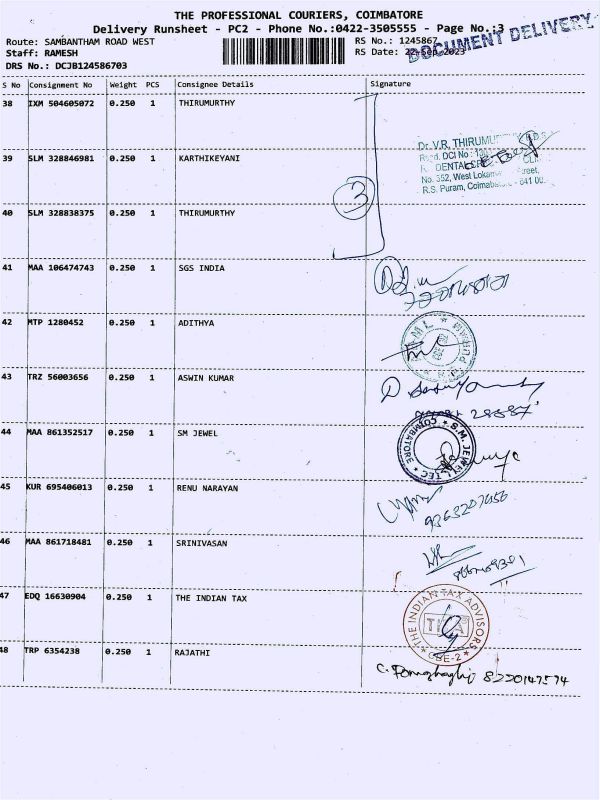 THE PROFESSIONAL COURIERS, COIMBATORE
Delivery Runsheet - PC2 - Phone No.:0422-3505555 - Page No.:3
Route: SAMBANTHAM ROAD WEST RS No.: 1245867
Staff: RAMESH RS Date: 22-Sep-2023
DRS No.: DCJB124586703
DOCUMENT DELIVERY
S No Consignment No Weight PCS Consignee Details Signature
38 IXM 504605072 0.250 1 THIRUMURTHY
Dr. V.R. THIRUMU
39 SLM 328846981 0.250 1 KARTHIKEYANI
DENTAL
No. 352, West Lokam
R.S. Puram, Coimba
3
40 SLM 328838375 0.250 1 THIRUMURTHY
41 MAA 106474743 0.250 1 SGS INDIA
42 MTP 1280452 0.250 1 ADITHYA
43 TRZ 56003656 0.250 1 ASWIN KUMAR
44 MAA 861352517 0.250 1 SM JEWEL
S.W. JEWELL TEC
COIMBATORE
45 KUR 695406013 0.250 1 RENU NARAYAN
46 MAA 861718481 0.250 1 SRINIVASAN
47 EDQ 16630904 0.250 1 THE INDIAN TAX
THE INDIAN TAX ADVISORS
CBE-2
48 TRP 6354238 0.250 1 RAJATHI
8220147574